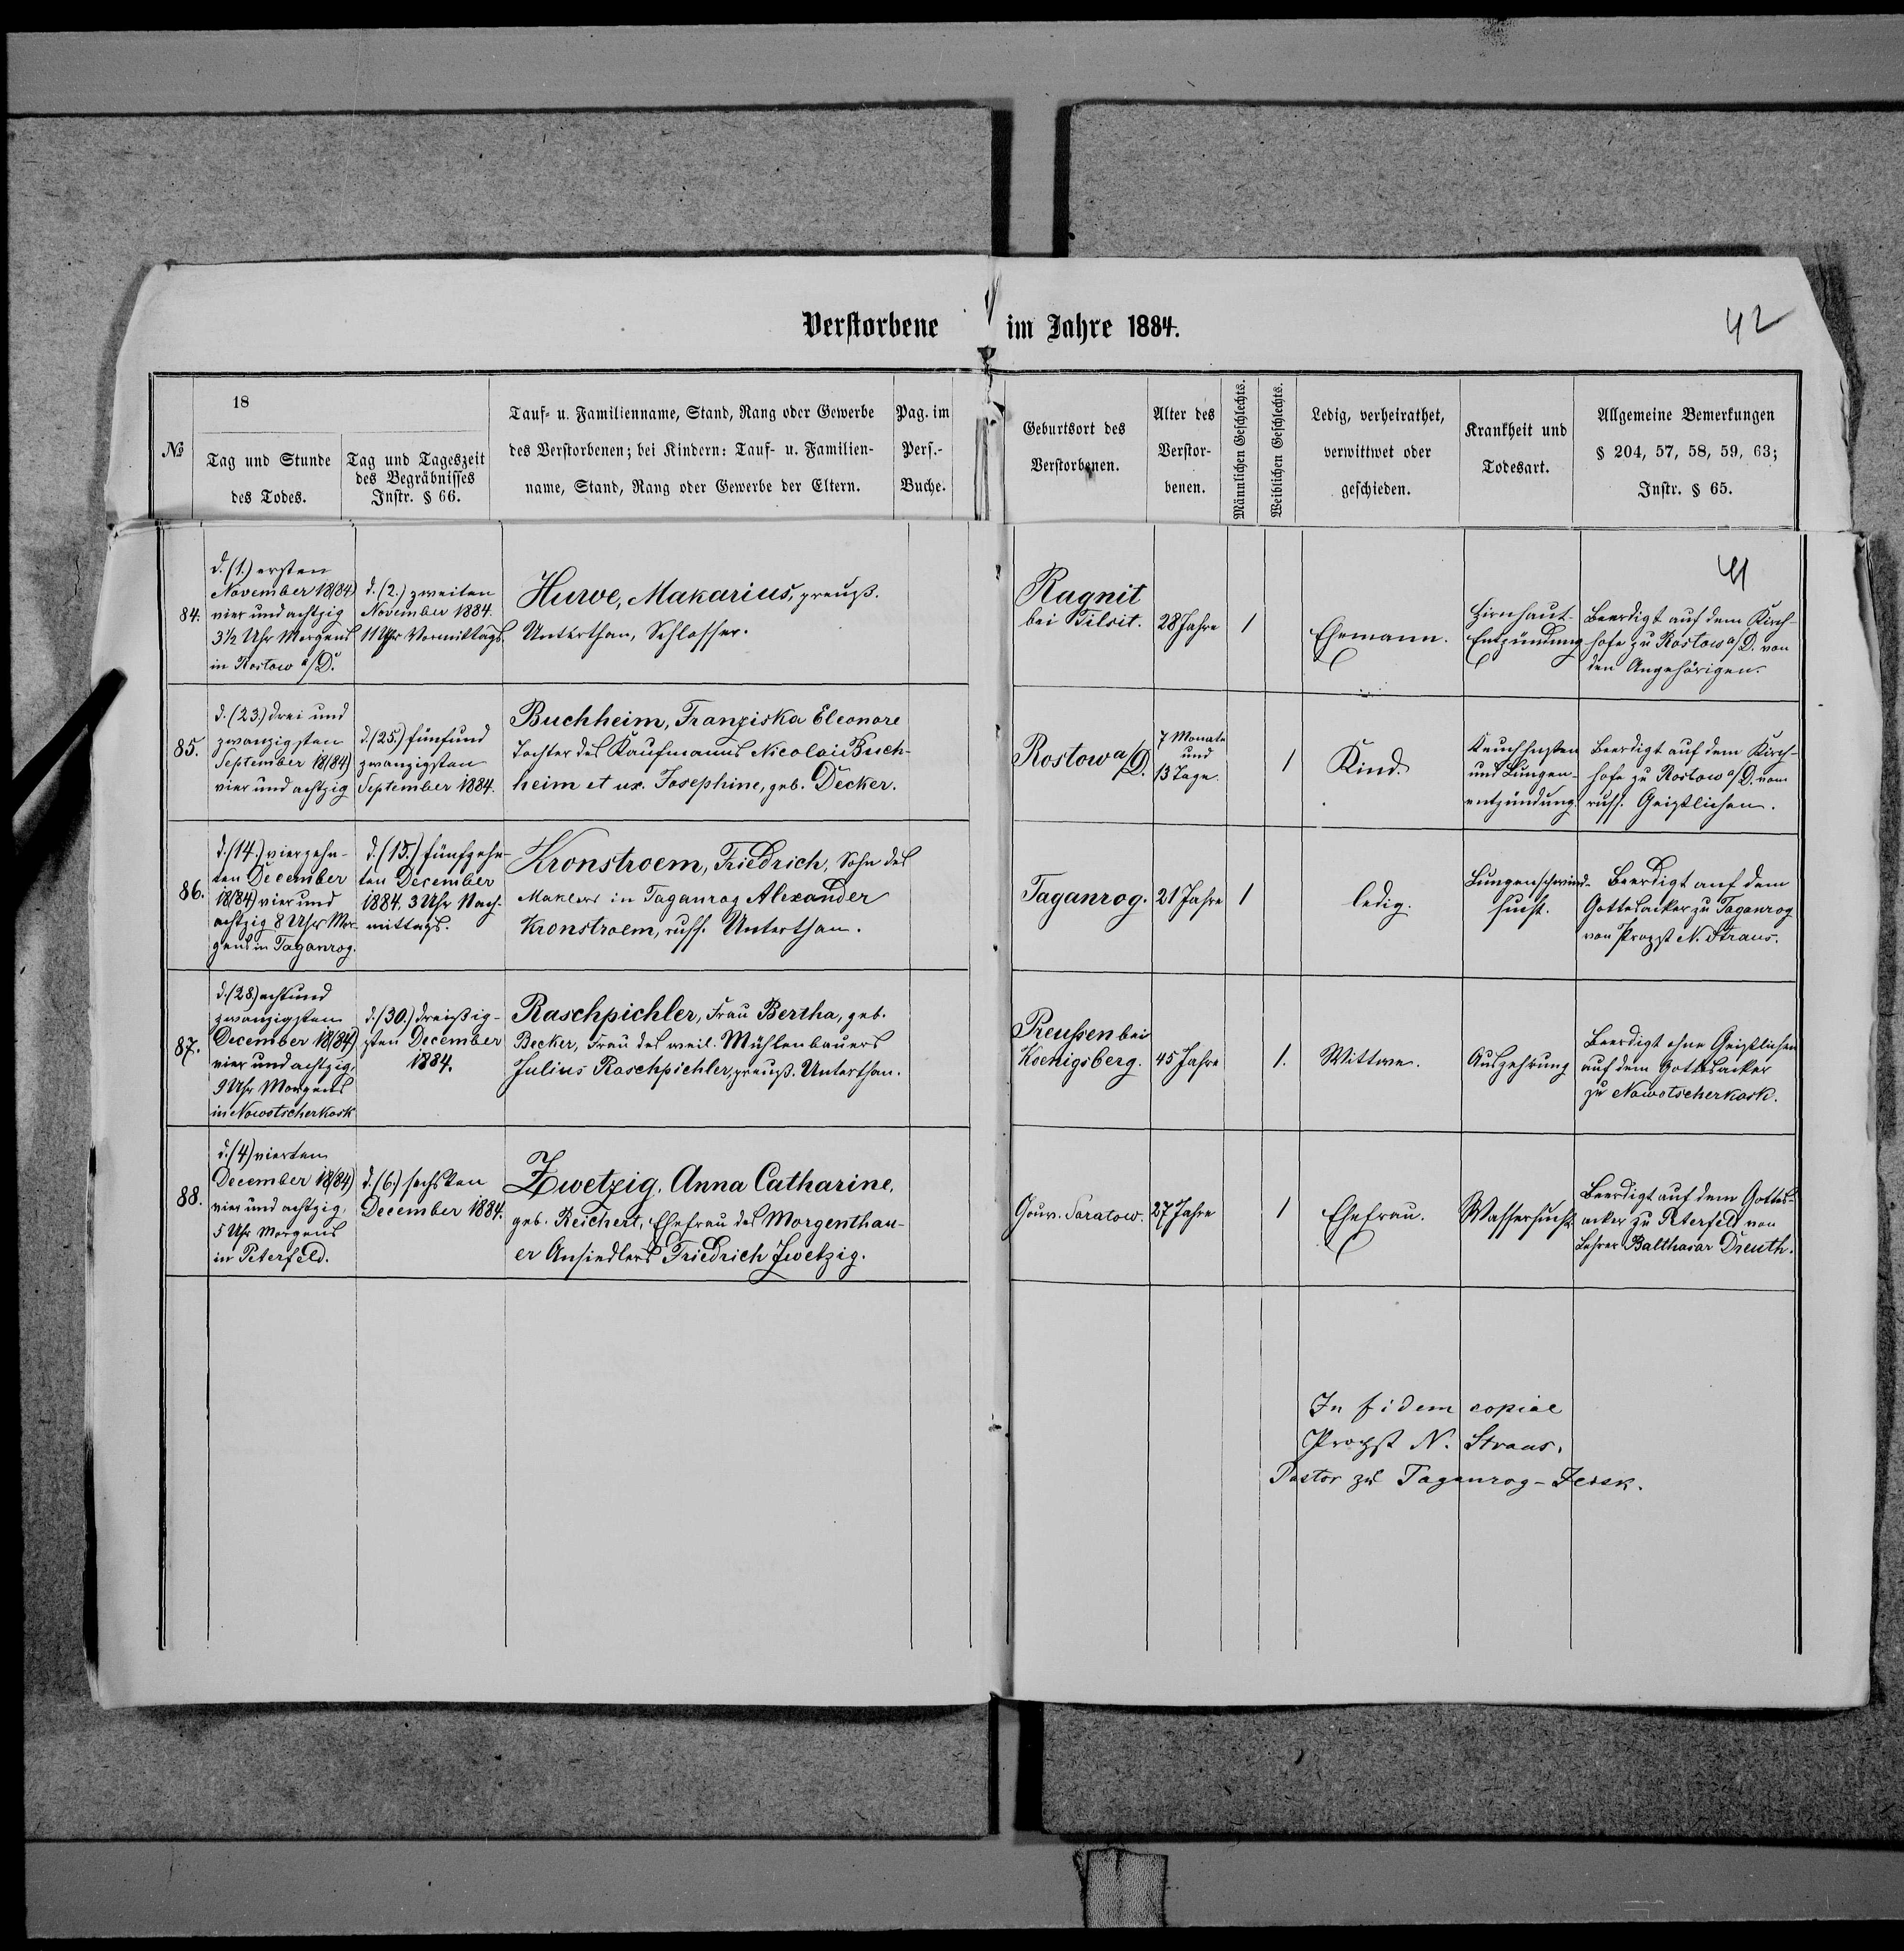 Verstorbene im Jahre 1884.
42
№
18
Tag und Stunde
des Todes.
Tag und Tageszeit
des Begräbnisses
Instr. § 66.
Tauf- u. Familienname, Stand, Rang oder Gewerbe
des Verstorbenen; bei Kindern: Tauf- u. Familien-
name, Stand, Rang oder Gewerbe der Eltern.
Pag. im
Pers.-
Buche.
Geburtsort des
Verstorbenen.
Alter des
Verstor-
benen.
Männlichen Geschlechts.
Weiblichen Geschlechts.
Ledig, verheirathet,
verwittwet oder
geschieden.
Krankheit und
Todesart.
Allgemeine Bemerkungen
§ 204, 57, 58, 59, 63;
Instr. § 65.
41
84.
d. (1.) ersten
November 18(84)
vier und achtzig
3½ Uhr Morgens
in Rostow a/D.
d. (2.) zweiten
November 1884.
11 Uhr Vormittags.
Hurve, Makarius, preuß.
Unterthan, Schlosser.
Ragnit
bei Tilsit.
28 Jahre
1
Ehemann.
Hirnhaut-
Entzündung
Beerdigt auf dem Kirch-
hofe zu Rostow a/D. von
den Angehörigen.
85.
d. (23.) drei und
zwanzigsten
September 18(84)
vier und achtzig
d. (25.) fünfund
zwanzigsten
September 1884.
Buchheim, Franziska Eleonore
Tochter des Kaufmanns Nicolai Buch-
heim et ux. Josephine, geb. Decker.
Rostow a/D.
7 Monate
und
13 Tage.
1
Kind.
Keuchhusten
und Lungen-
entzündung.
Beerdigt auf dem Kirch-
hofe zu Rostow a/D. vom
russ. Geistlichen.
86.
d. (14.) vierzehn-
ten December
18(84) vier und
achtzig 8 Uhr Mor-
gens in Taganrog.
d. (15.) fünfzehn-
ten December
1884. 3 Uhr Nach-
mittags.
Kronstroem, Friedrich, Sohn des
Maklers in Taganrog Alexander
Kronstroem, russ. Unterthan.
Taganrog.
21 Jahre
1
ledig.
Lungenschwind-
sucht.
Beerdigt auf dem
Gottesacker zu Taganrog
von Propst N. Straus.
87.
d. (28) achtund
zwanzigsten
December 18(84)
vier und achtzig,
9 Uhr Morgens
in Nowotscherkask
d. (30.) dreißig-
sten December
1884.
Raschpichler, Frau Bertha, geb.
Becker, Frau des weil. Mühlenbauers
Julius Raschpichler, preuß. Unterthan.
Preußen bei
Koenigsberg.
45 Jahre
1.
Wittwe.
Auszehrung
Beerdigt ohne Geistlichen
auf dem Gottesacker
zu Nowotscherkask.
88.
d. (4) vierten
December 18(84)
vier und achtzig,
5 Uhr Morgens
in Peterfeld.
d. (6.) sechsten
December 1884.
Zwetzig, Anna Catharine,
geb. Reichert, Ehefrau des Morgenthau-
er Ansiedlers Friedrich Zwetzig.
Gouv. Saratow.
27 Jahre
1
Ehefrau.
Wassersucht.
Beerdigt auf dem Gottes-
acker zu Peterfeld von
Lehrer Balthasar Dreuth.
In fidem copiae
Propst N. Straus,
Pastor zu Taganrog-Jeisk.